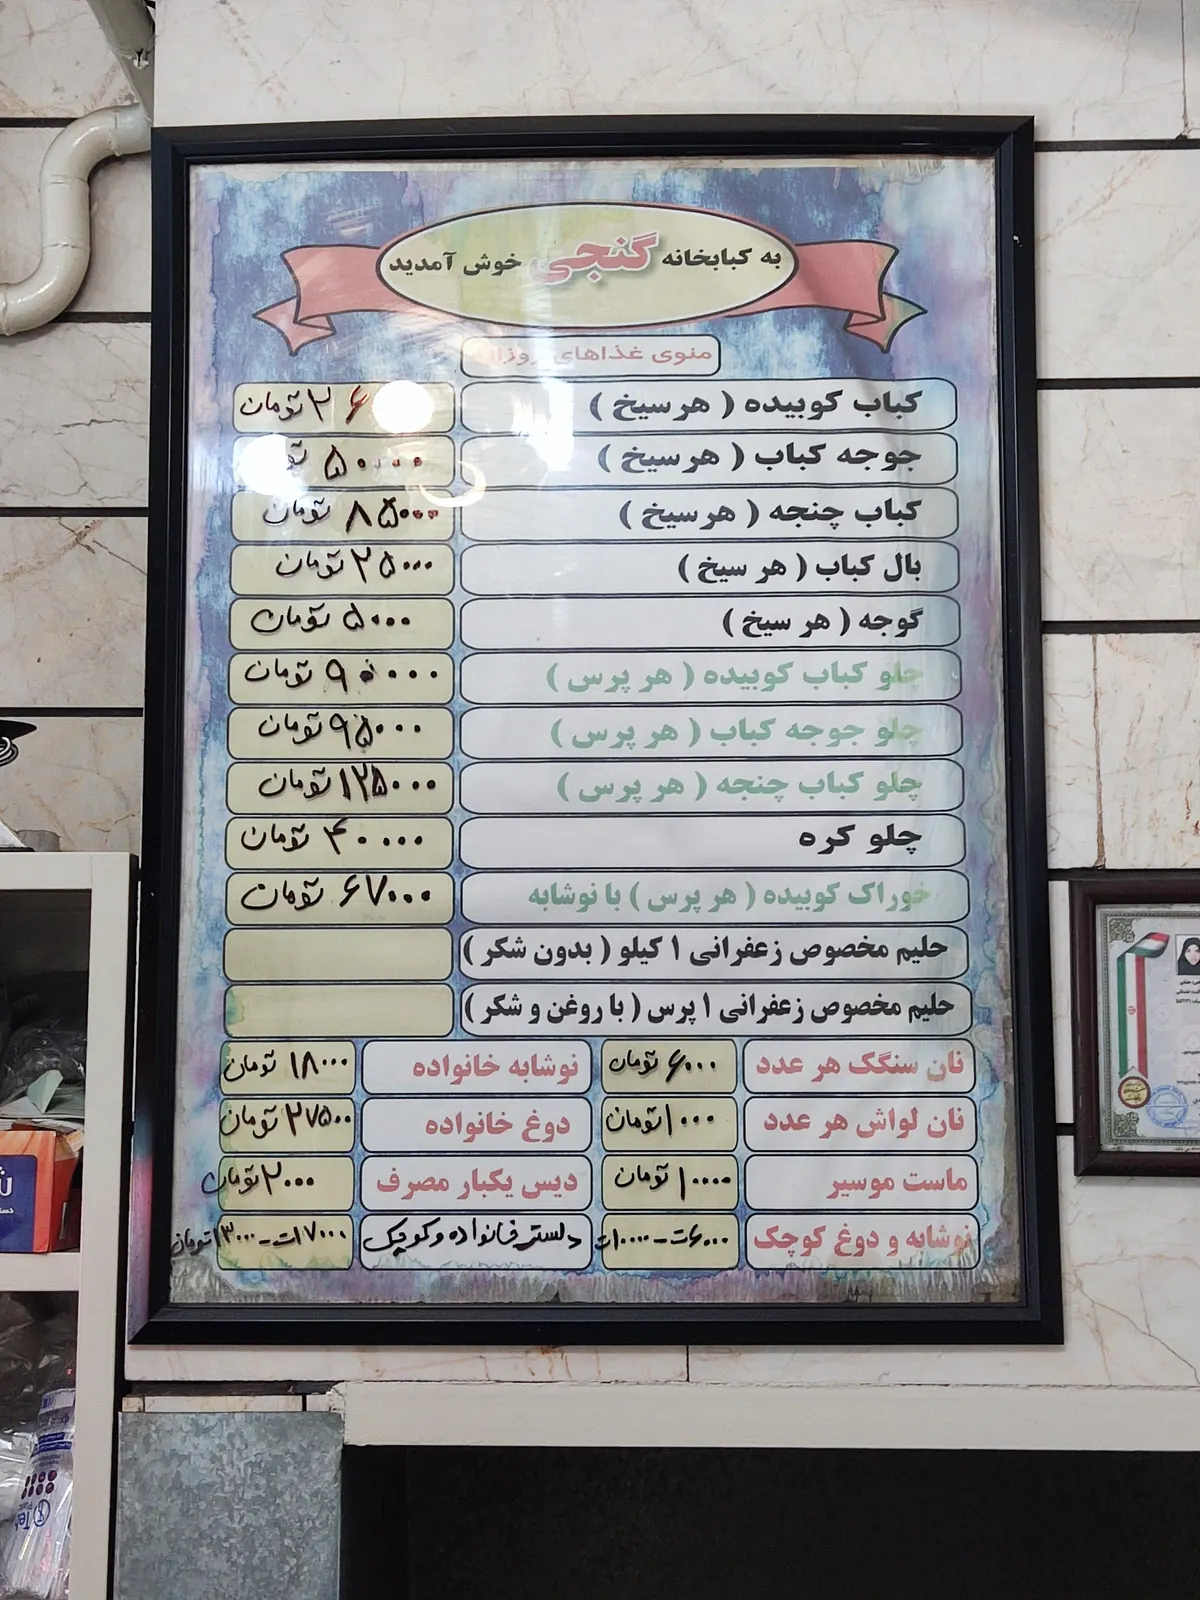 به کبابخانه گنجی خوش آمدید
منوی غذاهای روزانه
کباب کوبیده ( هر سیخ ) ۲۶ تومان
جوجه کباب ( هر سیخ ) ۵۰۰۰۰
کباب چنجه ( هر سیخ ) ۸۵۰۰۰ تومان
بال کباب ( هر سیخ ) ۲۵۰۰۰ تومان
گوجه ( هر سیخ ) ۵۰۰۰ تومان
چلو کباب کوبیده ( هر پرس ) ۹۰۰۰۰ تومان
چلو جوجه کباب ( هر پرس ) ۹۵۰۰۰ تومان
چلو کباب چنجه ( هر پرس ) ۱۲۵۰۰۰ تومان
چلو کره ۴۰۰۰۰ تومان
خوراک کوبیده ( هر پرس ) با نوشابه ۶۷۰۰۰ تومان
حلیم مخصوص زعفرانی ۱ کیلو ( بدون شکر )
حلیم مخصوص زعفرانی ۱ پرس ( با روغن و شکر )
نان سنگک هر عدد ۶۰۰۰ تومان نوشابه خانواده ۱۸۰۰۰ تومان
نان لواش هر عدد ۱۰۰۰ تومان دوغ خانواده ۲۷۵۰۰ تومان
ماست موسیر ۱۰۰۰۰ تومان دیس یکبار مصرف ۲۰۰۰ تومان
نوشابه و دوغ کوچک ۶۰۰۰ت-۱۰۰۰۰ت دلستر خانواده و کوچک ۱۷۰۰۰ت-۱۳۰۰۰تومان